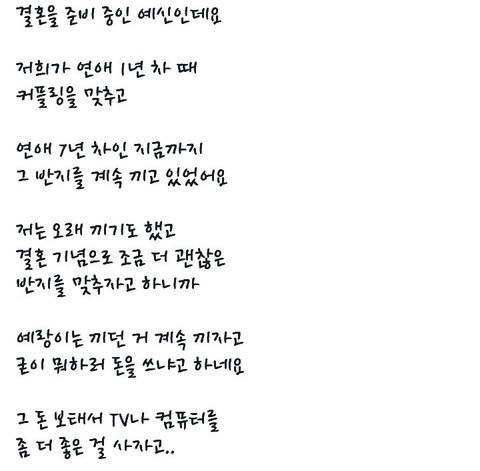 결혼을 준비 중인 예신인데요
저희가 연애 1년 차 때
커플링을 맞추고
연애 7년 차인 지금까지
그 반지를 계속 끼고 있었어요
저는 오래 끼기도 했고
결혼 기념으로 조금 더 괜찮은
반지를 맞추자고 하니까
예랑이는 끼던 거 계속 끼자고
굳이 뭐하러 돈을 쓰냐고 하네요
그 돈 보태서 TV나 컴퓨터를
좀 더 좋은 걸 사자고..